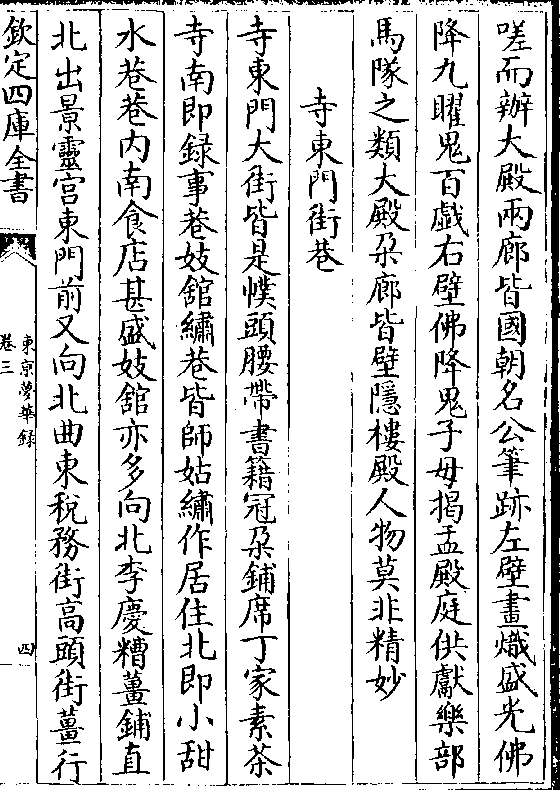 嗟而辦大殿兩廊皆國朝名公筆跡左壁畫熾盛光佛
降九曜鬼百戲右壁佛降鬼子母揭盂殿庭供獻樂部
馬隊之類大殿朶廊皆壁隱樓殿人物莫非精妙
寺東門街巷
寺東門大街皆是幞頭腰帶書籍冠朶鋪席丁家素茶
寺南即録事巷妓舘繡巷皆師姑繡作居住北即小甜
水巷巷内南食店甚盛妓舘亦多向北李慶糟薑鋪直
北出景靈宫東門前又向北曲東税務街高頭街薑行
欽定四庫全書
東京夢華録
卷三
四